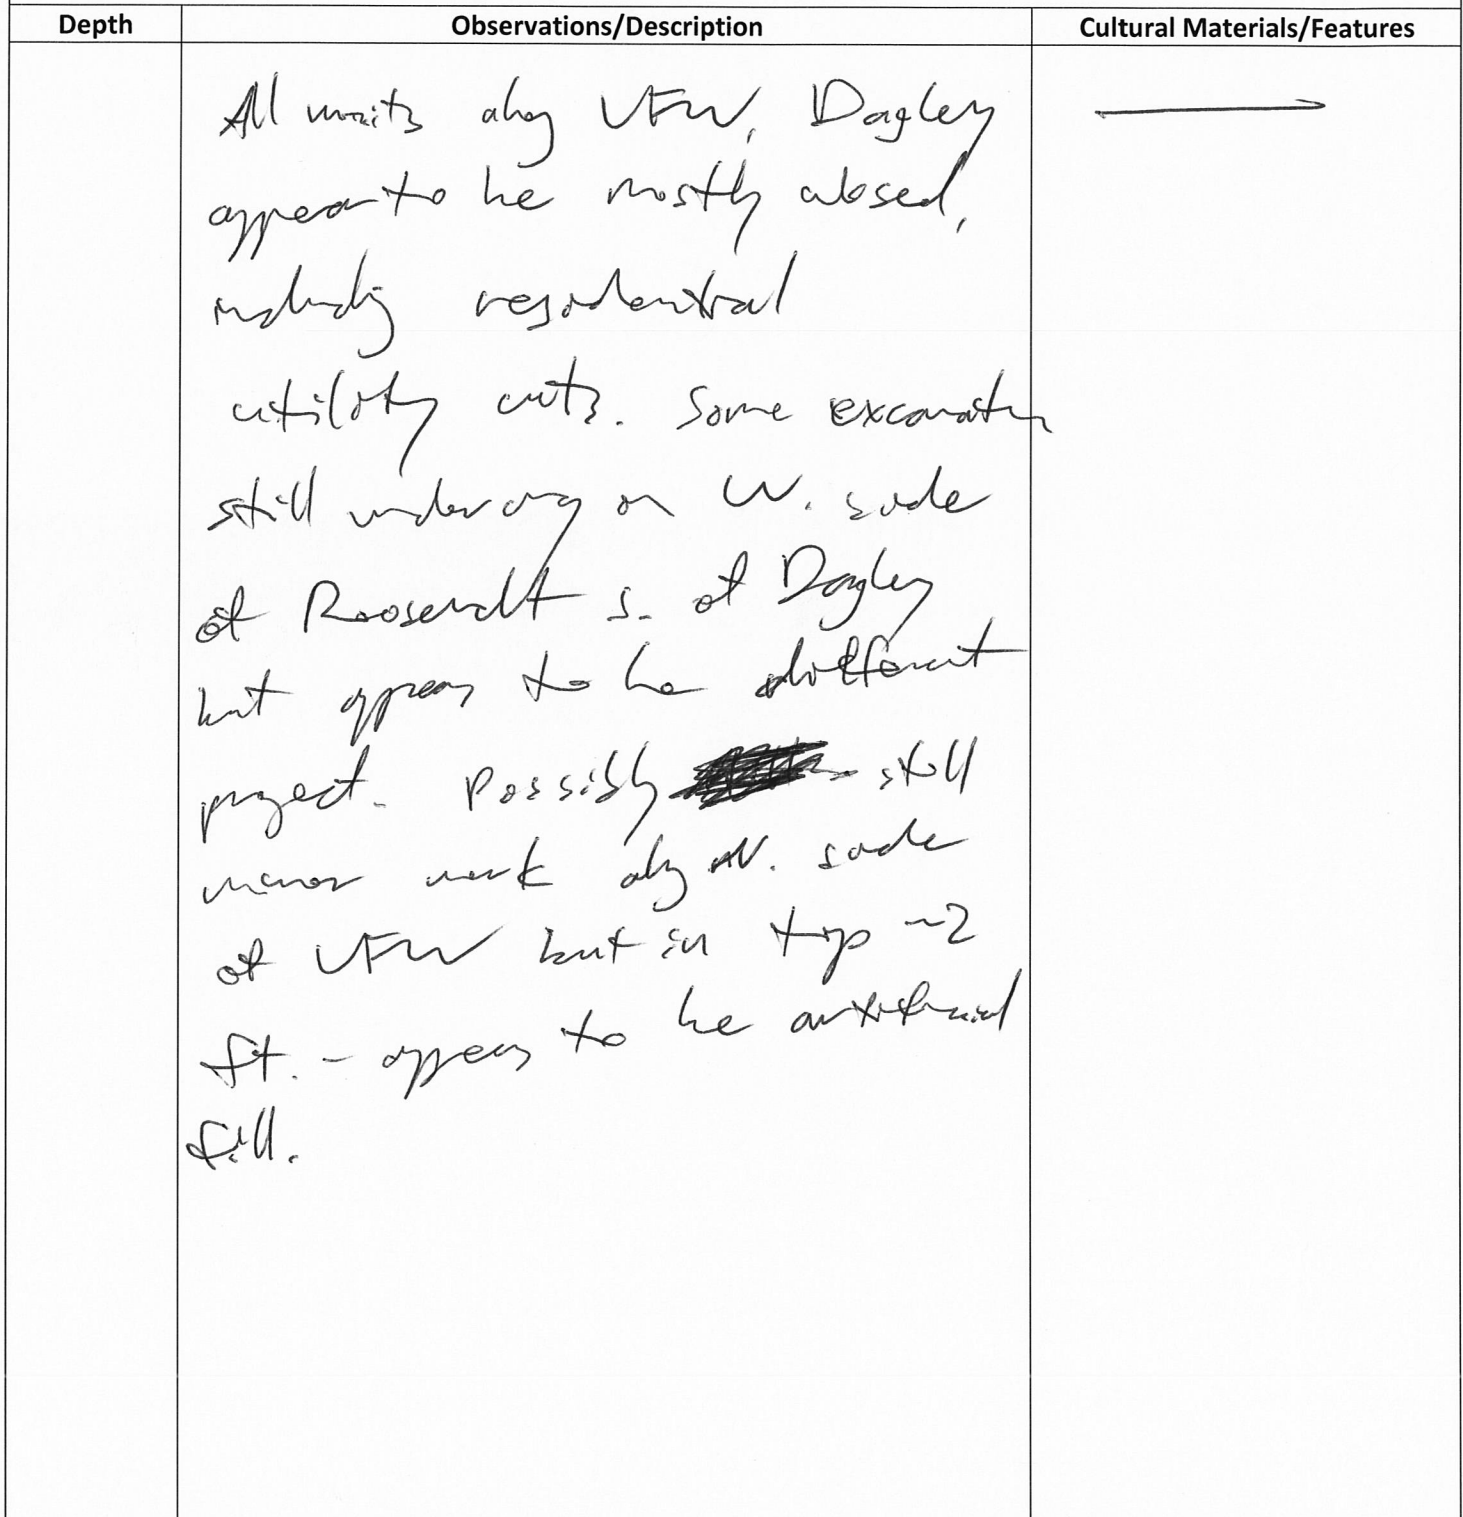 Depth Observations/Description Cultural Materials/Features
All units along VFW, Dagley
appear to be mostly closed,
including residential
utility cuts. Some excavation
still undergoing on W. side
of Roosevelt S. of Dagley
but appears to be different
project. Possibly still
minor work along N. side
of VFW but in top ~2
ft. - appears to be artificial
fill.